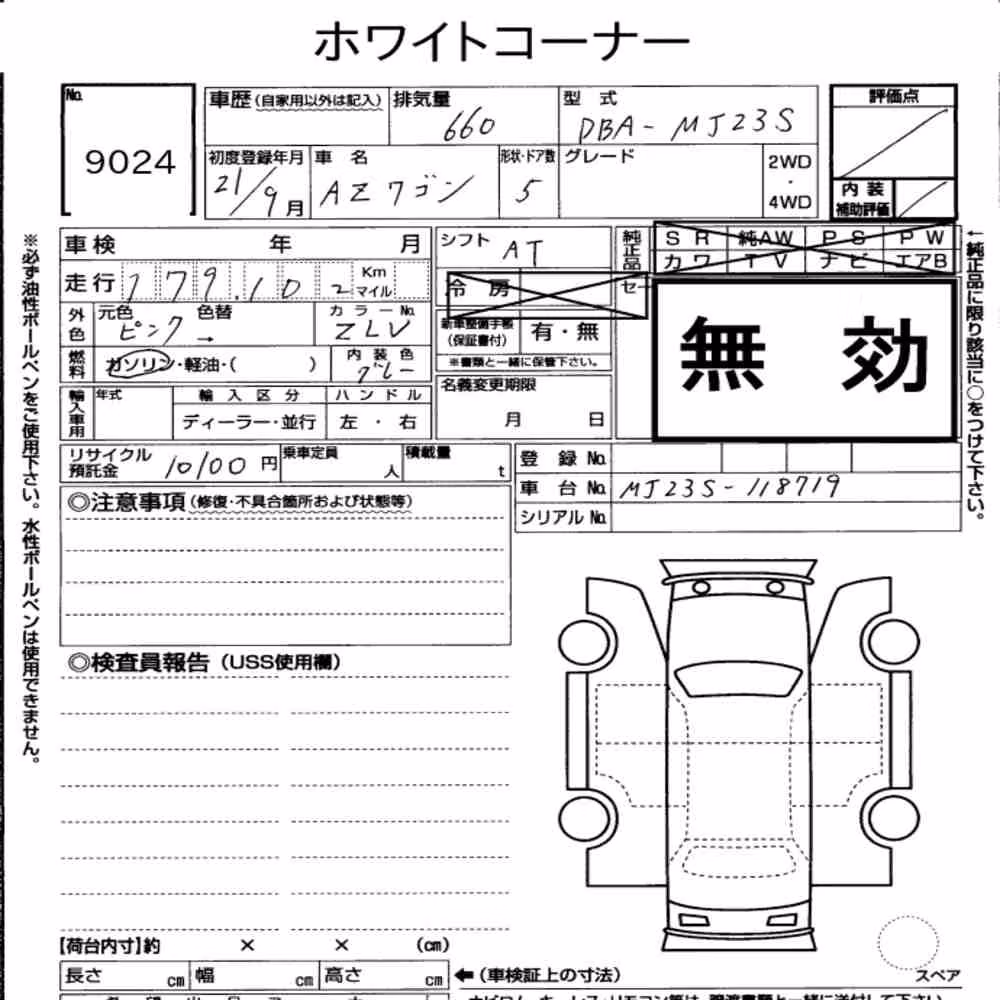 ホワイトコーナー
No.
9024
車歴(自家用以外は記入)
排気量
660
型 式
DBA-MJ23S
評価点
初度登録年月
21/9月
車 名
AZワゴン
形状・ドア数
5
グレード
2WD
・
4WD
内 装
補助評価
車検 年 月
シフト
AT
純正品
SR 純AW PS PW
カワ TV ナビ エアB
走行
179.10 2
Km
マイル
冷 房
セー
外色
元色
ピンク
色替
→
カラーNo.
ZLV
新車整備手帳
(保証書付)
有・無
※書類と一緒に保管下さい。
無 効
燃料
ガソリン・軽油・( )
内装色
グレー
名義変更期限
月 日
輸入車用
年式
輸入区分
ハンドル
ディーラー・並行
左 ・ 右
リサイクル
預託金
10100円
乗車定員
人
積載量
t
登 録 No.
車 台 No.
MJ23S-118719
シリアル No.
◎注意事項(修復・不具合箇所および状態等)
◎検査員報告(USS使用欄)
【荷台内寸】約 × × (cm)
長さ cm
幅 cm
高さ cm
←(車検証上の寸法)
スペア
※必ず油性ボールペンをご使用下さい。水性ボールペンは使用できません。
←純正品に限り該当に○をつけて下さい。